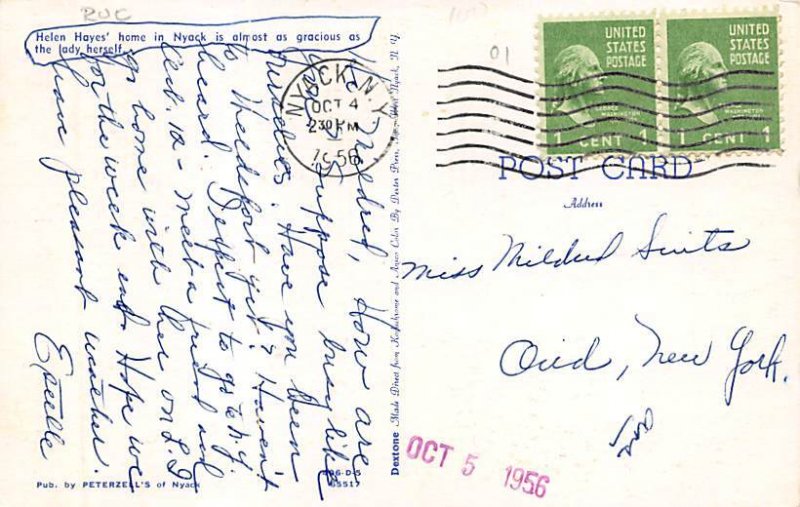 RUC
Helen Hayes' home in Nyack is almost as gracious as
the lady herself.
Dear Mildred, How are
you? Suppose busy like
ourselves. Have you been
to Weedsport yet? Haven't
heard. Expect to go to N.Y.
Oct. 12 - meet a friend and
go home with her on L.I.
for the week end. Hope we
have pleasant weather.
Estelle
Pub. by PETERZELL'S of Nyack
D-5
65517
Dextone Made Direct from Kodachrome and Ansco Color By Dexter Press, West Nyack, N. Y.
NYACK N.Y.
OCT 4
230 PM
1956
01
UNITED
STATES
POSTAGE
WASHINGTON
1 CENT 1
UNITED
STATES
POSTAGE
WASHINGTON
1 CENT 1
POST CARD
Address
Miss Mildred Suits
Ovid, New York.
OCT 5 1956